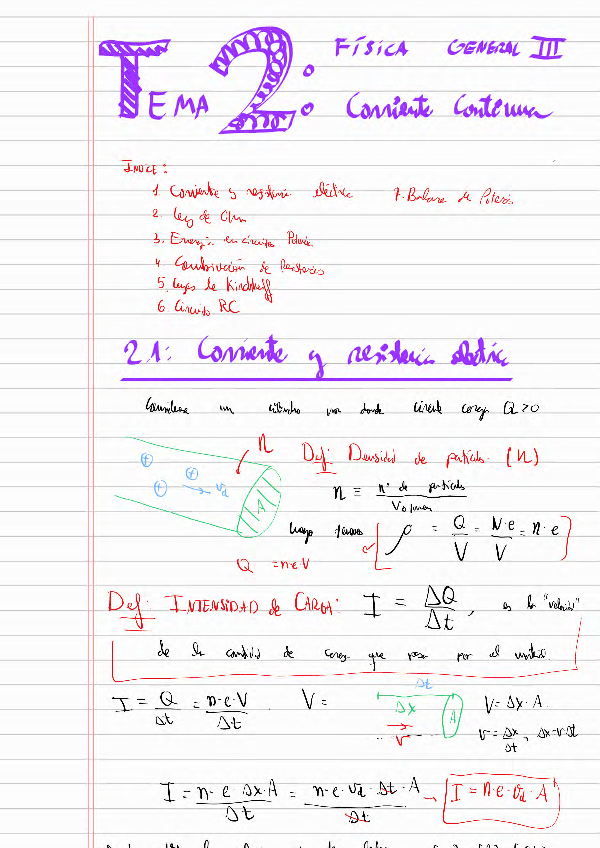 TEMA 2:
FÍSICA GENERAL III
Corriente Continua
ÍNDICE:
1. Corriente y resistencia eléctrica
2. Ley de Ohm
3. Energía en circuitos Potencia
4. Combinación de Resistencias
5. Leyes de Kirchhoff
6. Circuito RC
7. Balance de Potencia
2.1: Corriente y resistencia eléctrica
un cilindro por donde circula carga Q>0
n
Vd
A
Def: Densidad de partículas (n)
n ≡ nº de partículas / Volumen
Luego tenemos ρ = Q/V = N·e/V = n·e
Q = n·e·V
Def: INTENSIDAD de CARGA: I = ΔQ/Δt, es la "velocidad"
de la cantidad de carga que pasa por el
I = Q/Δt = n·e·V/Δt V =
Δt
Δx A
V
V = Δx·A
v = Δx/Δt, Δx = v·Δt
I = n·e Δx·A/Δt = n·e·Vd·Δt·A/Δt → I = n·e·Vd·A